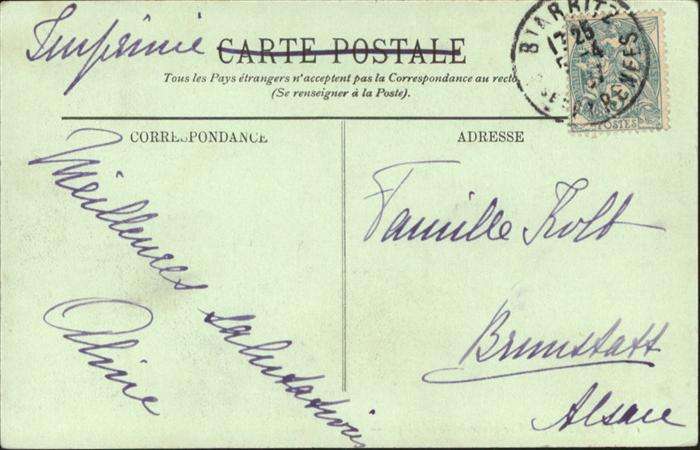 Imprimé
CARTE POSTALE
Tous les Pays étrangers n'acceptent pas la Correspondance au recto
(Se renseigner à la Poste).
BIARRITZ
17 25
PYRENEES
POSTES
CORRESPONDANCE
ADRESSE
Meilleures salutations
Aline
Famille Kolb
Brunstatt
Alsace